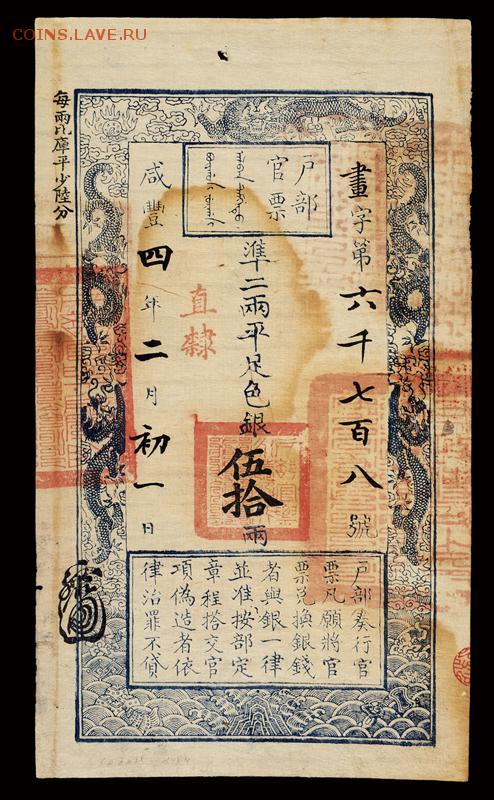 COINS.LAVE.RU
戶部
官票
畫字第六千七百八號
準二兩平足色銀伍拾兩
直隸
咸豐四年二月初一日
每兩比庫平少陸分
戶部奏行官
票凡願將官
票兌換銀錢
者與銀一律
並准按部定
章程搭交官
項偽造者依
律治罪不貸